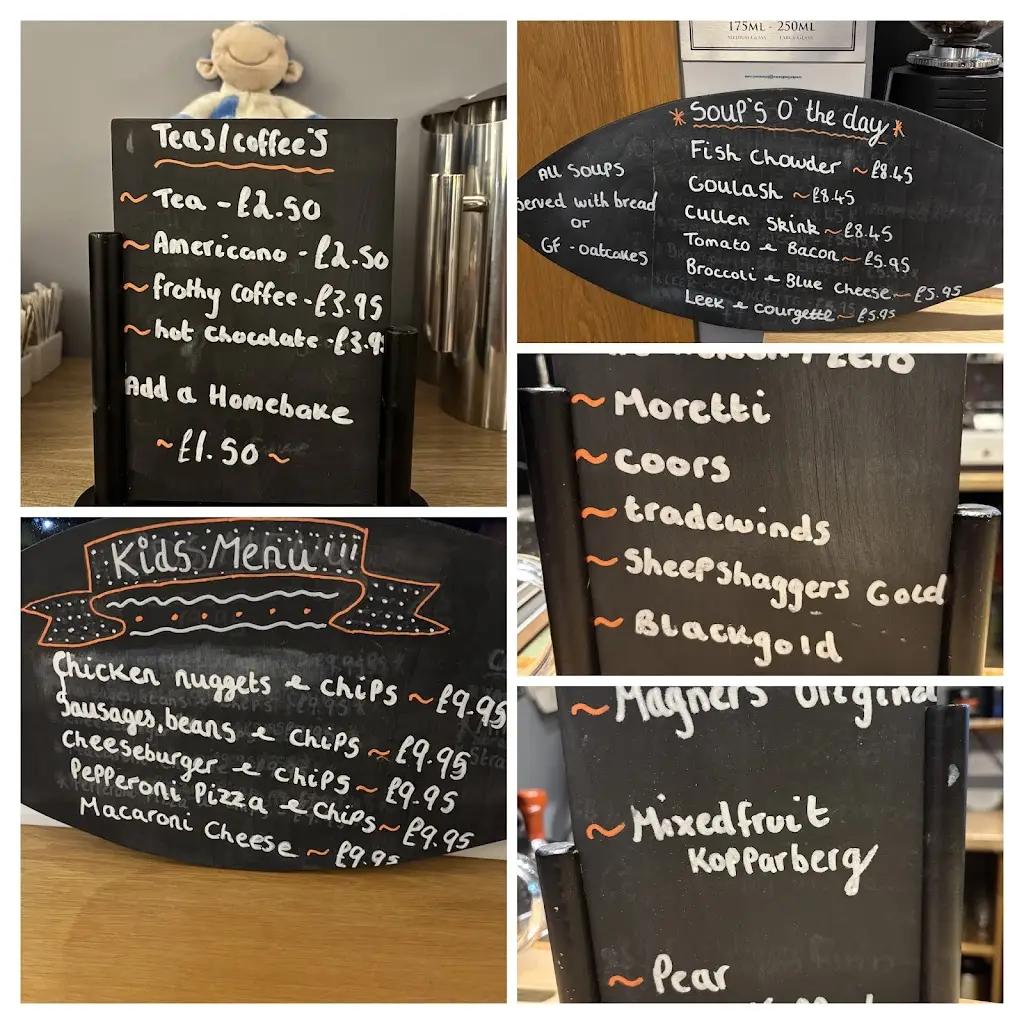 Teas/coffee's
~ Tea - £2.50
~ Americano - £2.50
~ frothy coffee - £3.95
~ hot chocolate - £3.9
Add a Homebake
~ £1.50 ~
175ML - 250ML
MEDIUM GLASS LARGE GLASS
* Soup's O' the day *
All Soups
served with bread
or
GF - oatcakes
Fish Chowder ~ £8.45
Goulash ~ £8.45
Cullen Skink ~ £8.45
Tomato & Bacon ~ £5.95
Broccoli & Blue Cheese ~ £5.95
Leek & Courgette ~ £5.95
Zero
~ Moretti
~ Coors
~ tradewinds
~ Sheepshaggers Gold
~ Blackgold
Kids Menu!!!
Chicken nuggets & chips ~ £9.95
Sausages, beans & chips ~ £9.95
Cheeseburger & chips ~ £9.95
Pepperoni Pizza & Chips ~ £9.95
Macaroni Cheese ~ £9.95
~ Magners Original
~ Mixedfruit
Kopparberg
~ Pear